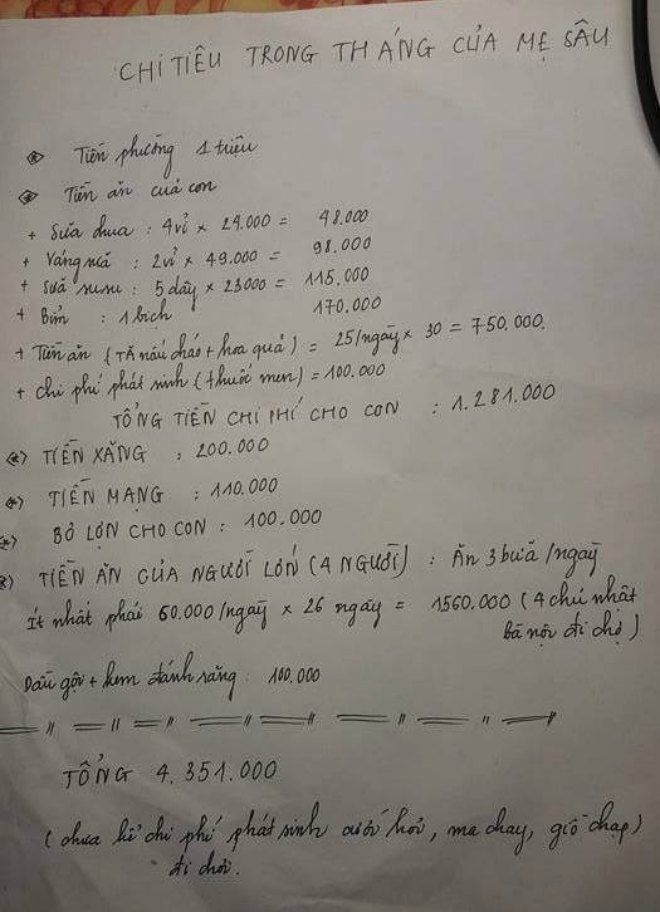 CHI TIÊU TRONG THÁNG CỦA MẸ SÂU
Tiền phường 1 triệu
Tiền ăn cuả con
+ Sữa chua : 4vỉ × 24.000 = 48.000
+ Váng sữa : 2vỉ × 49.000 = 98.000
+ Sữa susu : 5 dây × 23000 = 115.000
+ Bỉm : 1 bịch 170.000
+ Tiền ăn (TĂ nấu cháo + hoa quả) = 25/ngày × 30 = 750.000.
+ chi phí phát sinh (thuốc men) = 100.000
TỔNG TIỀN CHI PHÍ CHO CON : 1.281.000
(*) TIỀN XĂNG : 200.000
(*) TIỀN MẠNG : 110.000
(*) BỎ LỢN CHO CON : 100.000
(*) TIỀN ĂN CỦA NGƯỜI LỚN (4 NGƯỜI) : Ăn 3 bữa /ngày
Ít nhất phải 60.000/ngày × 26 ngày = 1560.000 (4 chủ nhật
bà nội đi chợ)
Dầu gội + kem đánh răng : 100.000
TỔNG 4.351.000
(chưa kể chi phí phát sinh cưới hỏi, ma chay, giỗ chạp)
đi chơi.